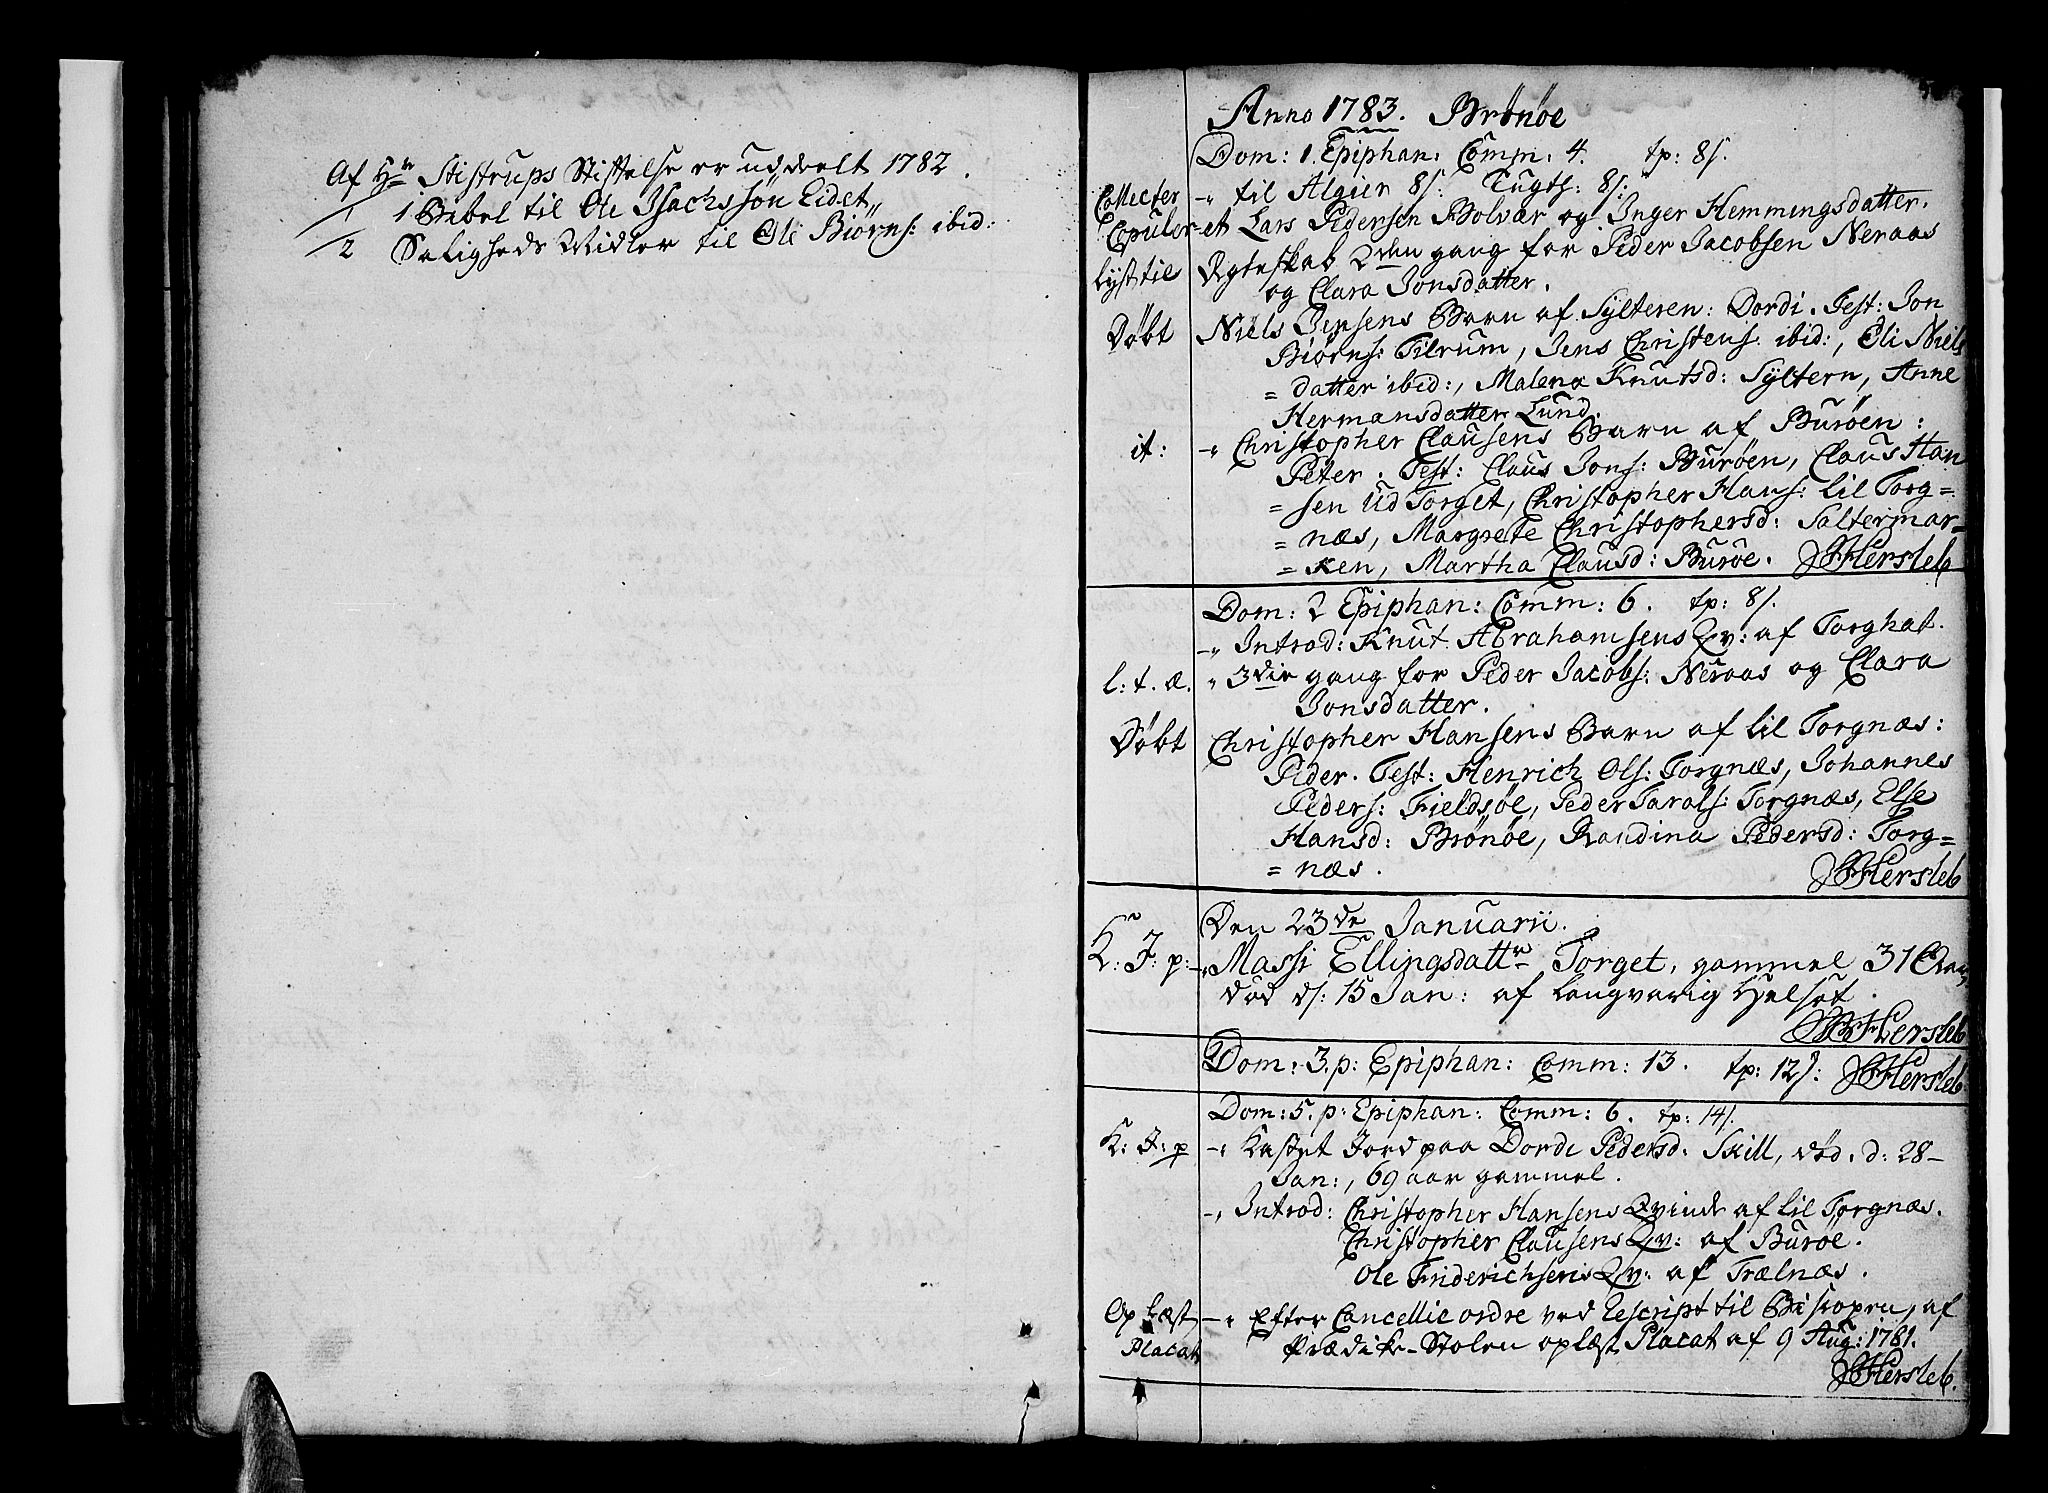 Af Hrn Stistrups Stiftelse er uddeelt 1782.
1 1 Bibel til Ole Isachssøn Eidet,,
2 Saligheds Midler til Ole Biörns: ibid:
Anno 1783. Brönöe
Dom: 1. Epiphan: Comm: 4. tp: 8/.
Collecter -„ til Algier 8/. Tugth: 8/.
Copuler-et Lars Pedersen Bolvær og Inger Hemmingsdatter.
lyst til Ægteskab 2den gang for Peder Jacobsen Neraas
og Clara Jonsdatter.
Döbt Niels Jensens Barn af Sylteren: Dordi. Test: Jon
Biörns: Tilrum, Jens Christens: ibid:, Eli Niels
= datter ibid:, Malena Knutsd: Syltern, Anne
Hermansdatter Lund.
it: -„ Christopher Clausens Barn af Buröen:
Peter. Test: Claus Jons: Buröen, Claus Han
= sen Ud Torget, Christopher Hans: lil Torg=
= næs, Margrete Christophersd: Saltermar=
= ken, Martha Clausd: Buröe. Hersleb
Dom: 2 Epiphan: Comm: 6. tp: 8/.
-„ Introd: Knut Abrahamsens Qv: af Torghat.
l: t. æ. „ 3die gang for Peder Jacobs: Neraas og Clara
Jonsdatter.
Döbt Christopher Hansens Barn af lil Torgnæs:
Peder. Test: Henrich Ols: Torgnæs, Johannes
Peders: Fieldsöe, Peder Tarals: Torgnæs, Else
Hansd: Brönöe, Randina Pedersd: Torg=
= næs. Hersleb
Den 23de Januarii.
K: J: p: -„ Massi Ellingsdattr Torget, gammel 31 Aar,
död d: 15 Jan: af langvarig Hælsot.
Hersleb
Dom: 3. p: Epiphan: Comm: 13. tp: 12/: Hersleb
Dom: 5. p: Epiphan: Comm: 6. tp: 14/.
K: J: p -„ Kastet Jord paa Dordi Pedersd: Skill, död d: 28-
Jan:, 69 aar gammel.
-„ Introd: Christopher Hansens Qvinde af lil Torgnæs.
Christopher Clausens Qv: af Buröe.
Ole Friderichsens Qv: af Trælnæs.
Oplæst -„ Efter Cancellie ordre ved Rescript til Biskopen, af
Placat Prædike-Stolen oplæst Placat af 9 Aug: 1781.
Hersleb.